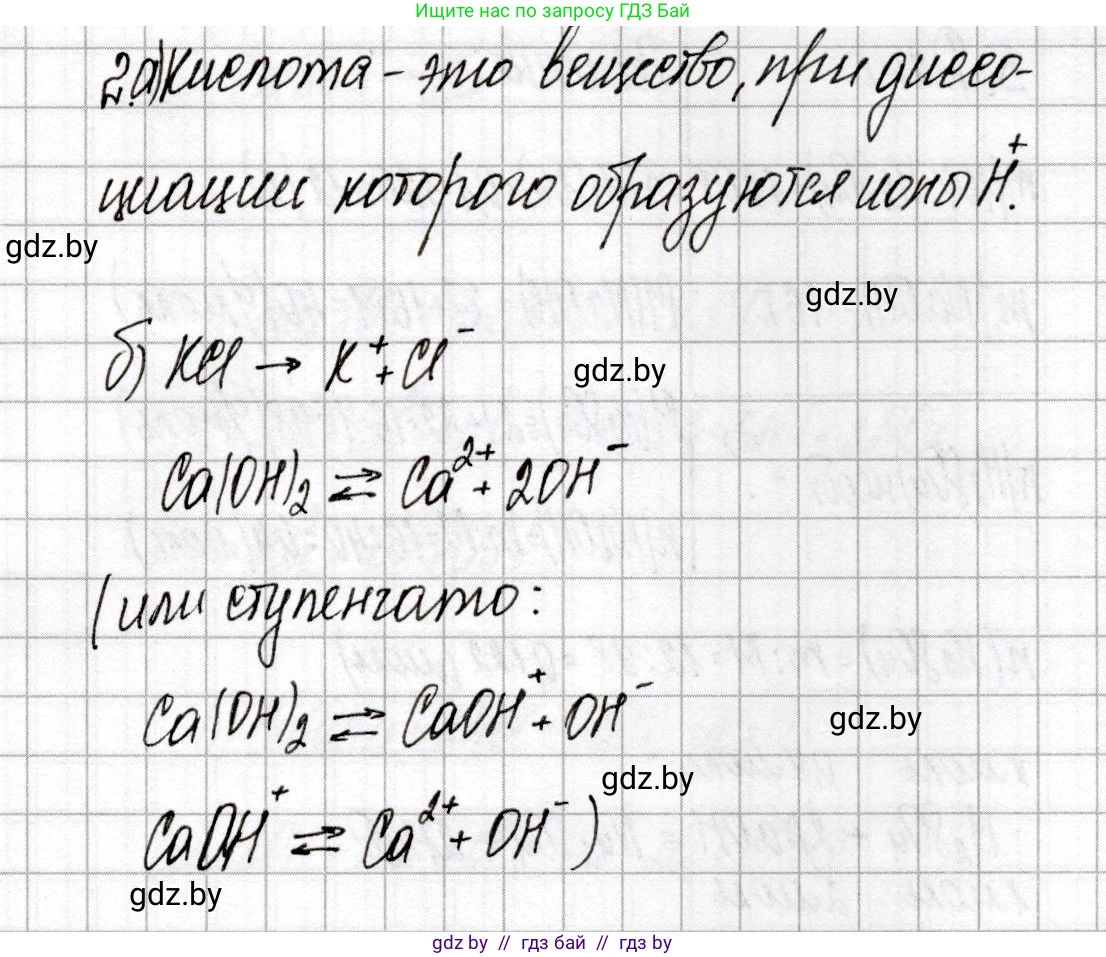 Ищите нас по запросу ГДЗ Бай
2.а) Кислота – это вещество, при диссо-
циации которого образуются ионы H⁺.
gdz.by
gdz.by
б) KCl → K⁺ + Cl⁻
gdz.by
Ca(OH)₂ ⇄ Ca²⁺ + 2OH⁻
(или ступенчато:
Ca(OH)₂ ⇄ CaOH⁺ + OH⁻
gdz.by
gdz.by
CaOH⁺ ⇄ Ca²⁺ + OH⁻)
gdz.by
gdz by // гдз бай // гдз by